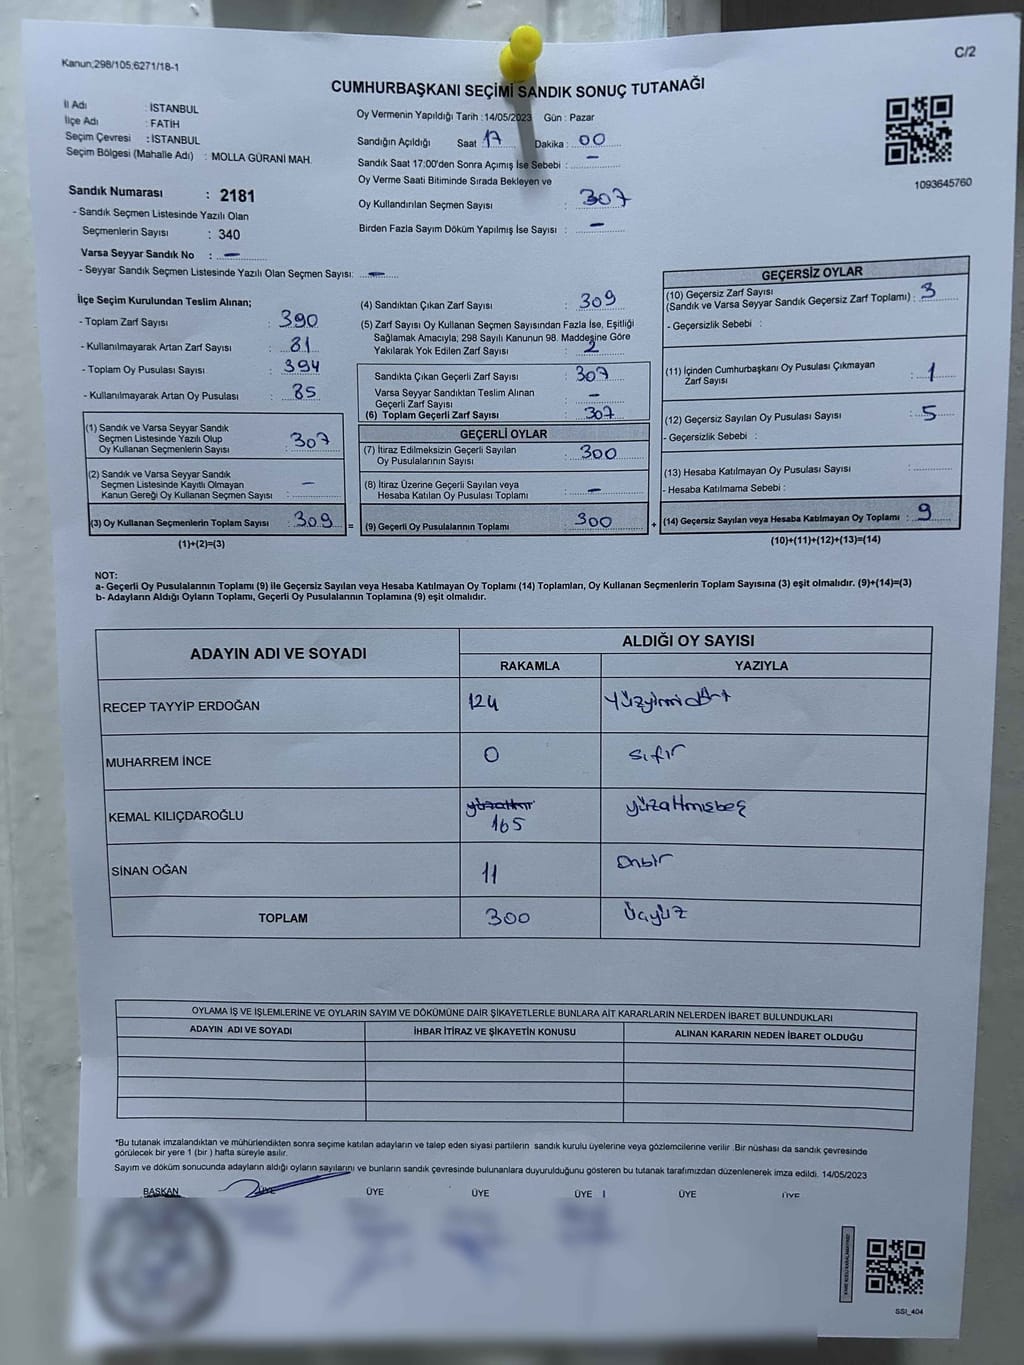 Kanun;298/105;6271/18-1
C/2
CUMHURBAŞKANI SEÇİMİ SANDIK SONUÇ TUTANAĞI
İl Adı : İSTANBUL
İlçe Adı : FATİH
Seçim Çevresi : İSTANBUL
Seçim Bölgesi (Mahalle Adı) : MOLLA GÜRANİ MAH.
Oy Vermenin Yapıldığı Tarih :14/05/2023 Gün : Pazar
Sandığın Açıldığı Saat 17 Dakika : 00
Sandık Saat 17:00'den Sonra Açımış İse Sebebi : –
Oy Verme Saati Bitiminde Sırada Bekleyen ve
Oy Kullandırılan Seçmen Sayısı : 307
Birden Fazla Sayım Döküm Yapılmış İse Sayısı : –
1093645760
Sandık Numarası : 2181
- Sandık Seçmen Listesinde Yazılı Olan
Seçmenlerin Sayısı : 340
Varsa Seyyar Sandık No : –
- Seyyar Sandık Seçmen Listesinde Yazılı Olan Seçmen Sayısı: –
İlçe Seçim Kurulundan Teslim Alınan;
- Toplam Zarf Sayısı : 390
- Kullanılmayarak Artan Zarf Sayısı : 81
- Toplam Oy Pusulası Sayısı : 394
- Kullanılmayarak Artan Oy Pusulası : 85
(1) Sandık ve Varsa Seyyar Sandık
Seçmen Listesinde Yazılı Olup
Oy Kullanan Seçmenlerin Sayısı : 307
(2) Sandık ve Varsa Seyyar Sandık
Seçmen Listesinde Kayıtlı Olmayan
Kanun Gereği Oy Kullanan Seçmen Sayısı : –
(3) Oy Kullanan Seçmenlerin Toplam Sayısı : 309 =
(1)+(2)=(3)
(4) Sandıktan Çıkan Zarf Sayısı : 309
(5) Zarf Sayısı Oy Kullanan Seçmen Sayısından Fazla İse, Eşitliği
Sağlamak Amacıyla; 298 Sayılı Kanunun 98. Maddesine Göre
Yakılarak Yok Edilen Zarf Sayısı : 2
Sandıkta Çıkan Geçerli Zarf Sayısı : 307
Varsa Seyyar Sandıktan Teslim Alınan
Geçerli Zarf Sayısı : –
(6) Toplam Geçerli Zarf Sayısı : 307
GEÇERLİ OYLAR
(7) İtiraz Edilmeksizin Geçerli Sayılan
Oy Pusulalarının Sayısı : 300
(8) İtiraz Üzerine Geçerli Sayılan veya
Hesaba Katılan Oy Pusulaları Toplamı : –
(9) Geçerli Oy Pusulalarının Toplamı : 300 +
GEÇERSİZ OYLAR
(10) Geçersiz Zarf Sayısı
(Sandık ve Varsa Seyyar Sandık Geçersiz Zarf Toplamı) : 3
- Geçersizlik Sebebi :
(11) İçinden Cumhurbaşkanı Oy Pusulası Çıkmayan
Zarf Sayısı : 1
(12) Geçersiz Sayılan Oy Pusulası Sayısı : 5
- Geçersizlik Sebebi :
(13) Hesaba Katılmayan Oy Pusulası Sayısı :
- Hesaba Katılmama Sebebi :
(14) Geçersiz Sayılan veya Hesaba Katılmayan Oy Toplamı : 9
(10)+(11)+(12)+(13)=(14)
NOT:
a- Geçerli Oy Pusulalarının Toplamı (9) ile Geçersiz Sayılan veya Hesaba Katılmayan Oy Toplamı (14) Toplamları, Oy Kullanan Seçmenlerin Toplam Sayısına (3) eşit olmalıdır. (9)+(14)=(3)
b- Adayların Aldığı Oyların Toplamı, Geçerli Oy Pusulalarının Toplamına (9) eşit olmalıdır.
ADAYIN ADI VE SOYADI
ALDIĞI OY SAYISI
RAKAMLA YAZIYLA
RECEP TAYYİP ERDOĞAN 124 Yüzyirmidört
MUHARREM İNCE 0 sıfır
KEMAL KILIÇDAROĞLU 165 yüzaltmışbeş
SİNAN OĞAN 11 Onbir
TOPLAM 300 Üçyüz
OYLAMA İŞ VE İŞLEMLERİNE VE OYLARIN SAYIM VE DÖKÜMÜNE DAİR ŞİKAYETLERLE BUNLARA AİT KARARLARIN NELERDEN İBARET BULUNDUKLARI
ADAYIN ADI VE SOYADI İHBAR İTİRAZ VE ŞİKAYETİN KONUSU ALINAN KARARIN NEDEN İBARET OLDUĞU
*Bu tutanak imzalandıktan ve mühürlendikten sonra seçime katılan adayların ve talep eden siyasi partilerin sandık kurulu üyelerine veya gözlemcilerine verilir .Bir nüshası da sandık çevresinde
görülecek bir yere 1 (bir ) hafta süreyle asılır.
Sayım ve döküm sonucunda adayların aldığı oyların sayılarını ve bunların sandık çevresinde bulunanlara duyurulduğunu gösteren bu tutanak tarafımızdan düzenlenerek imza edildi. 14/05/2023
BAŞKAN ÜYE ÜYE ÜYE ÜYE ÜYE ÜYE
SSI_404